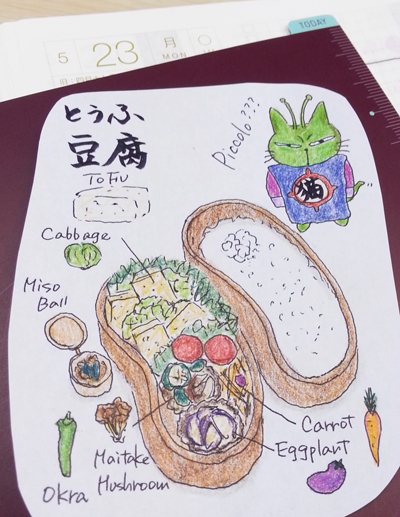 TODAY
5 23 月
MON
とうふ
豆腐
TOFU
Piccolo???
猫
Cabbage
Miso
Ball
Carrot
Eggplant
Maitake
Mushroom
Okra